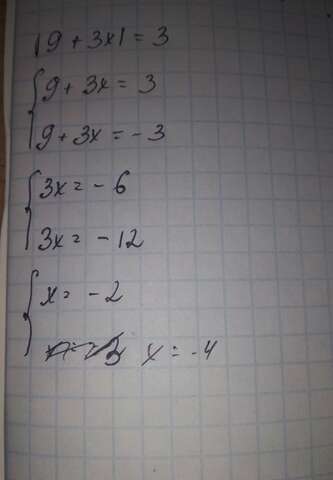 |9 + 3x| = 3
9 + 3x = 3
9 + 3x = - 3
3x = - 6
3x = - 12
x = - 2
x = - 4